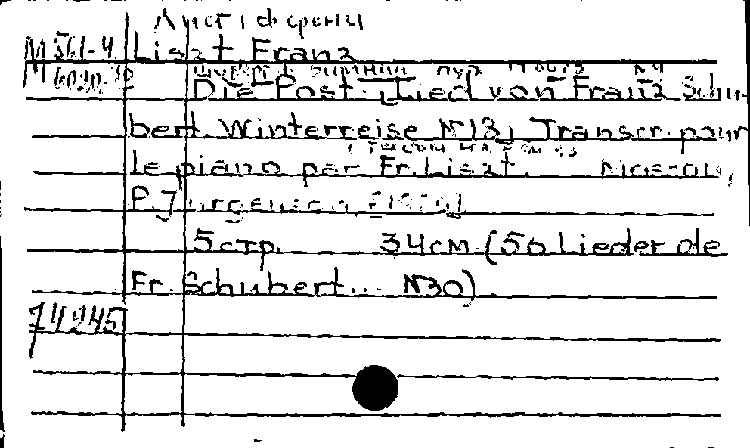 Лист Ференц
М 561-4 Liszt Franz
М
Die Post. Lied von Franz Schu-
bert. Winterreise N13, Transcr. pour
le piano par Fr. Liszt. Moscou,
P. Jurgenson
5 стр. 34 см (50 Lieder de
Fr. Schubert... N30)
74245